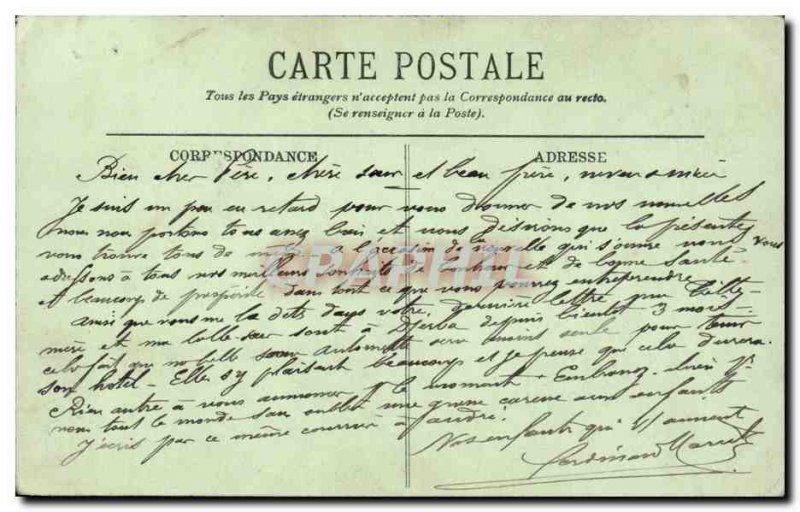 CARTE POSTALE
Tous les Pays étrangers n'acceptent pas la Correspondance au recto.
(Se renseigner à la Poste).
CORRESPONDANCE
ADRESSE
Bien cher Père, chère sœur et beau frère, neveu
Je suis un peu en retard pour vous donner de nos nouvelles
nous nous portons tous assez bien et nous désirons que la présente
vous trouve tous de à l'occasion de qui s'ouvre nous vous
adressons à tous nos meilleurs souhaits de bonheur et de bonne santé
et beaucoup de prospérité dans tout ce que vous pourrez entreprendre
ainsi que vous me la dite dans votre dernière lettre que
mère et ma belle sœur sont à Djerba depuis bientôt 3 mois
cela fait que ma belle sœur sera moins seule pour tenir
son hotel - Elle s'y plaisant beaucoup et je pense que cela durera.
Rien autre à vous annoncer pour le moment - Embrassez bien
nous tout le monde sans oublier une grosse caresse aux enfants
J'écris par ce même courrier à André.
Vos enfants qui s'aiment
Ferdinand